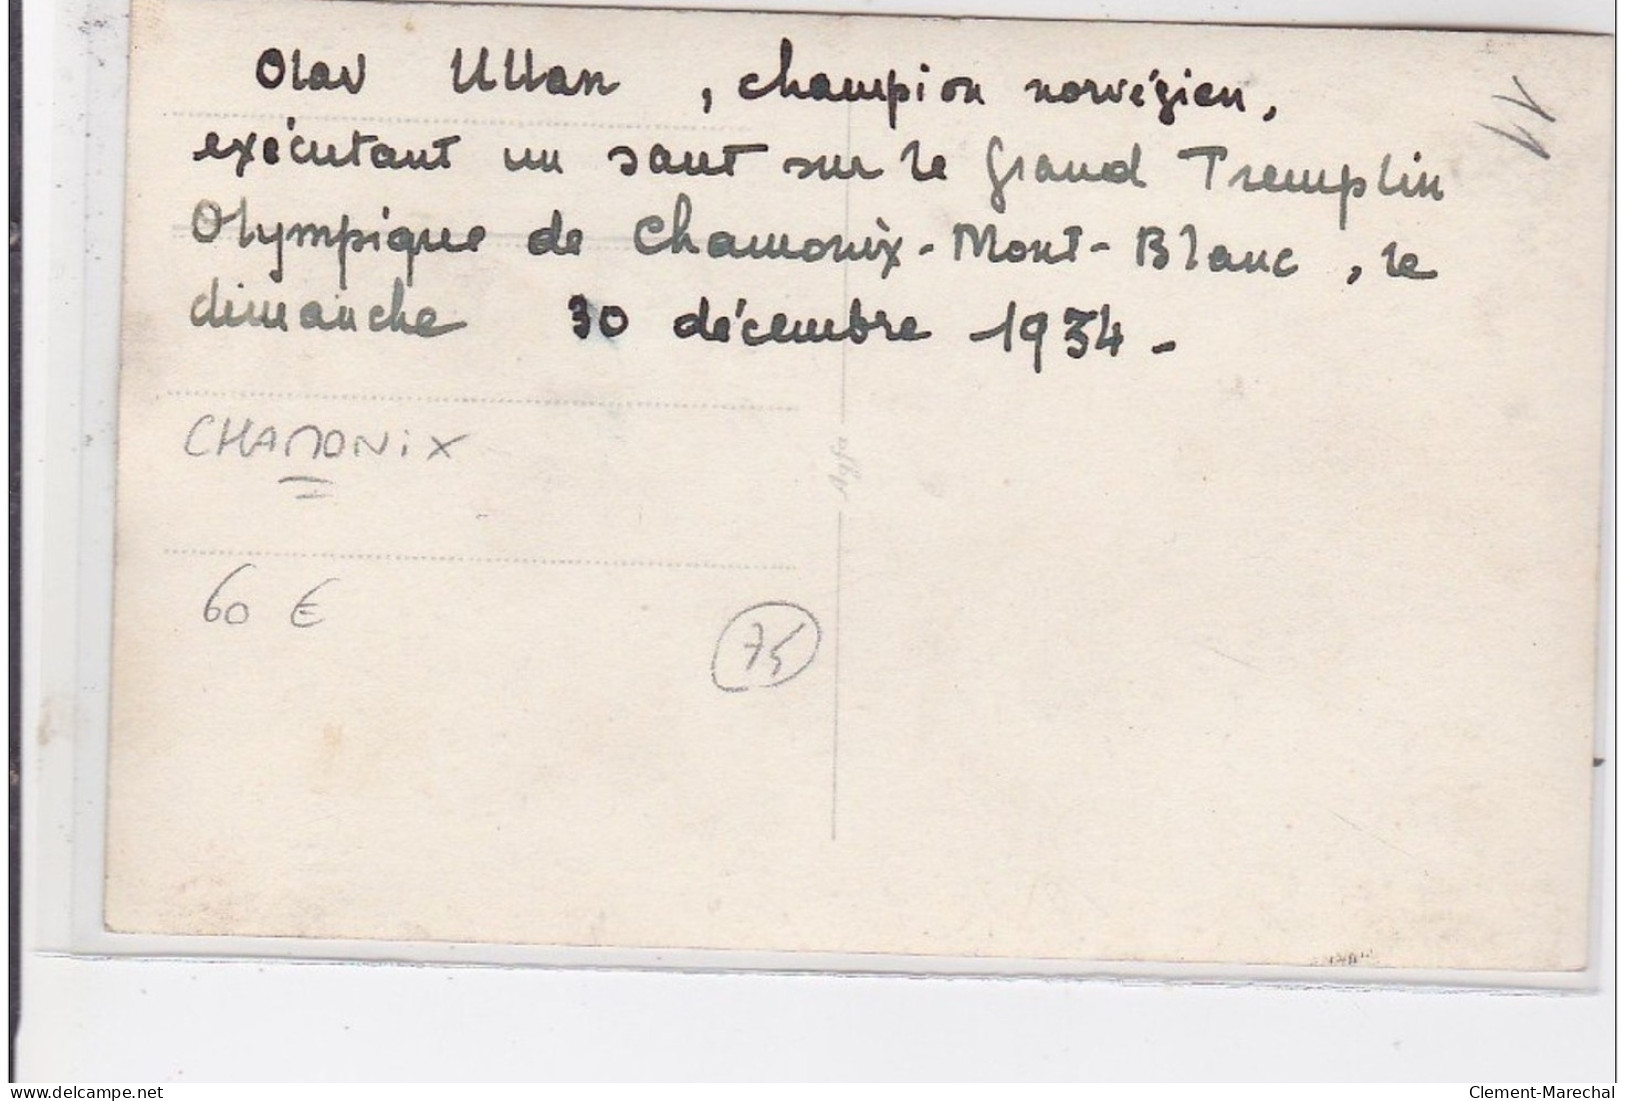 Olav Ullan , champion norvégien,
exécutant un saut sur le Grand Tremplin
Olympique de Chamonix-Mont-Blanc, le
dimanche 30 décembre 1934 -
11
CHAMONiX
Agfa
60 €
75
delcampe.net
Clement-Marechal